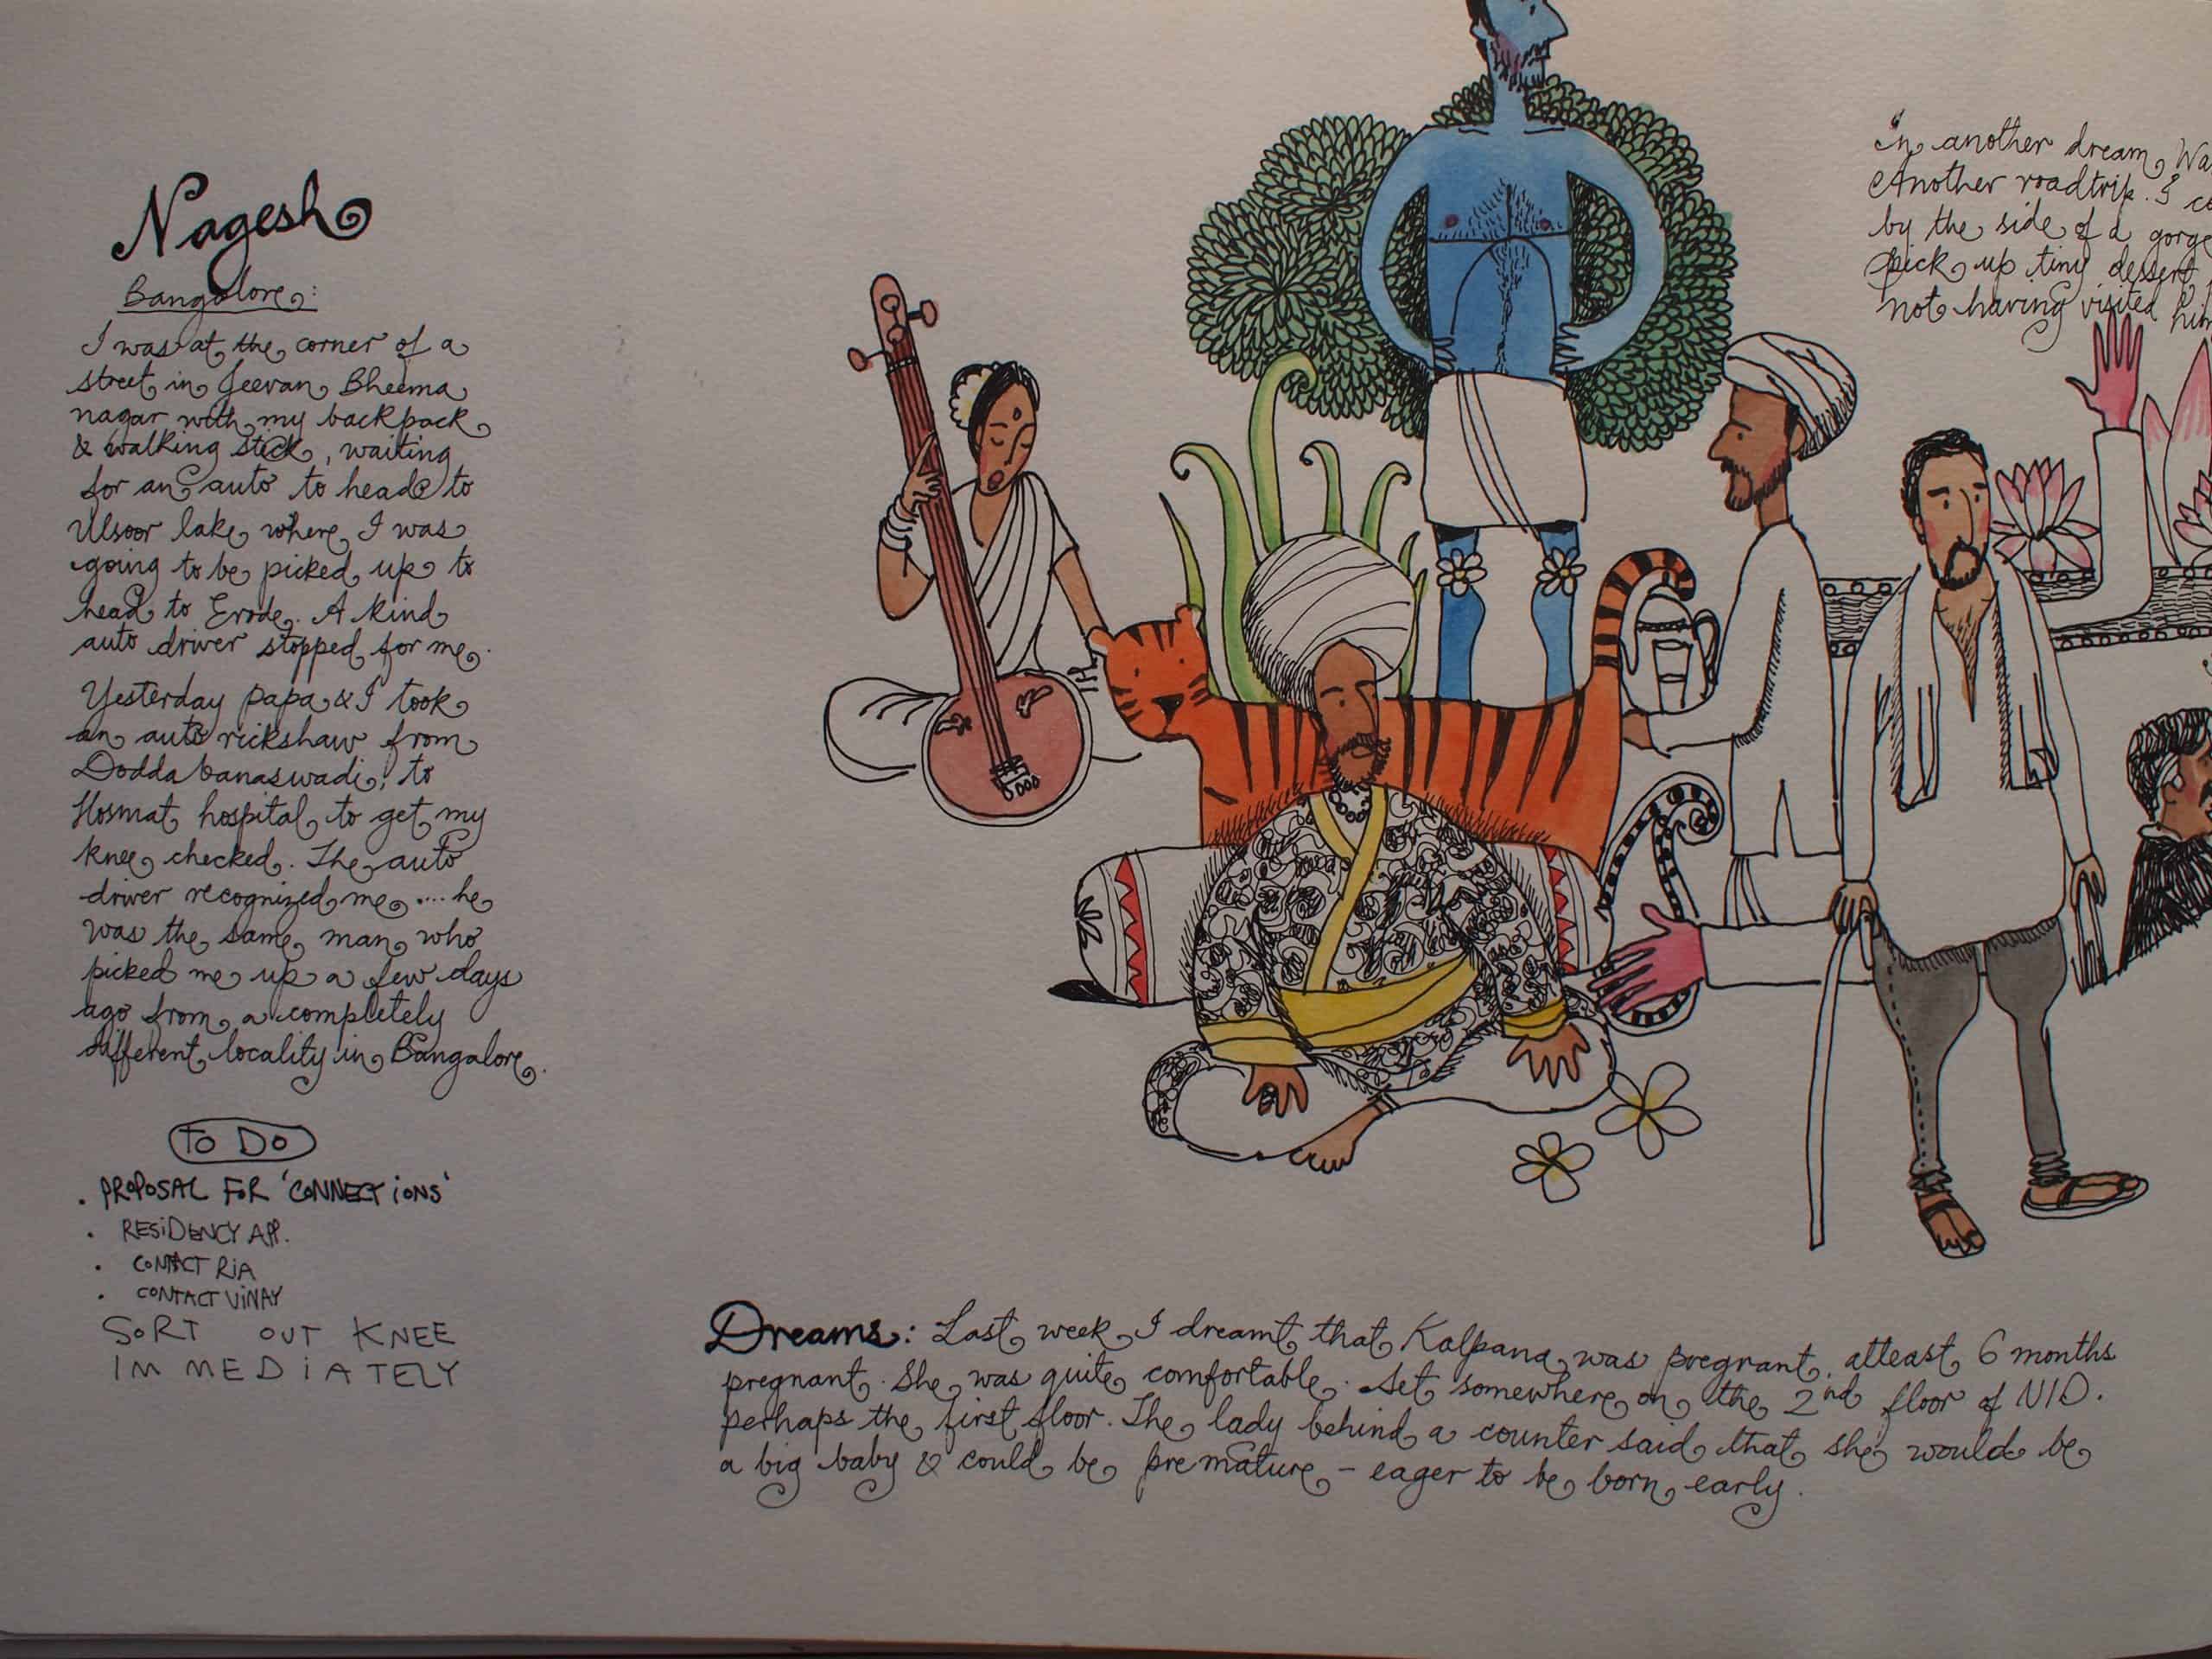 Nagesh
Bangalore:
I was at the corner of a
street in Jeevan Bheema
nagar with my backpack
& walking stick, waiting
for an auto to head to
Ulsoor lake where I was
going to be picked up to
head to Erode. A kind
auto driver stopped for me.
Yesterday papa & I took
an auto rickshaw from
Dodda banaswadi, to
Hosmat hospital to get my
knee checked. The auto
driver recognized me .... he
was the same man who
picked me up a few days
ago from a completely
different locality in Bangalore.
To Do
. PROPOSAL FOR 'CONNECTIONS'
. RESIDENCY APP.
. CONTACT RIA
. CONTACT VINAY
SORT OUT KNEE
IMMEDIATELY
"In another dream, Wa
Another roadtrip. I
by the side of a gorge
pick up tiny dessert
not having visited him
Dreams: Last week I dreamt that Kalpana was pregnant, atleast 6 months
pregnant. She was quite comfortable. Set somewhere on the 2nd floor of NID.
perhaps the first floor. The lady behind a counter said that she would be
a big baby & could be premature - eager to be born early.